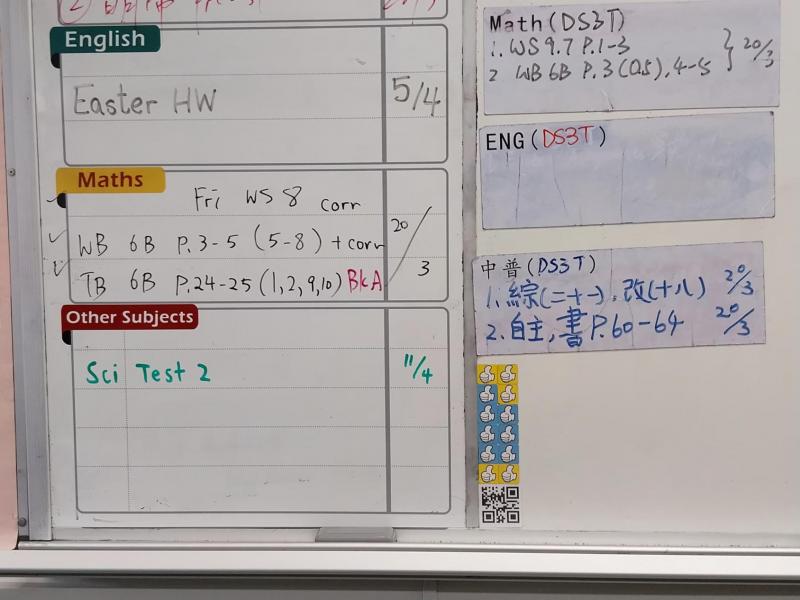 English
Easter HW 5/4
Maths
Fri WS 8 corr
WB 6B P.3-5 (5-8) + corr 20/3
TB 6B P.24-25 (1,2,9,10) Bk A
Other Subjects
Sci Test 2 11/4
Math (DS3T)
1. WS 9.7 P.1-3 } 20/3
2 WB 6B P.3 (Q5), 4-5
ENG (DS3T)
中普(DS3T)
1. 綜(二十一), 改(十八) 20/3
2. 自主, 書 P.60-64 20/3